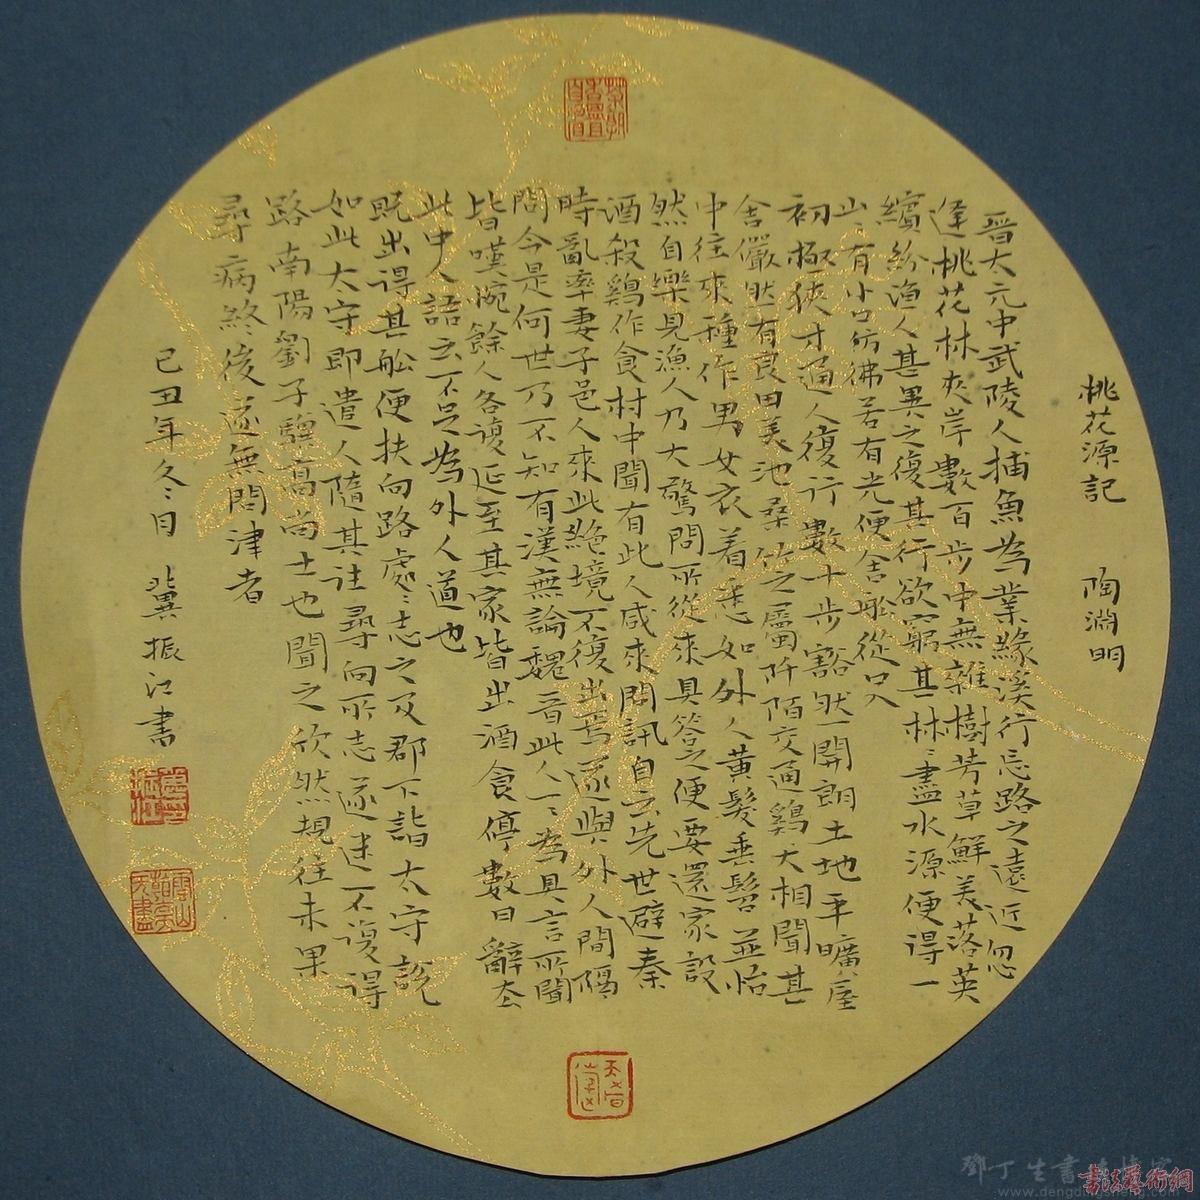 桃花源記 陶淵明
晉大元中武陵人捕魚為業緣溪行忘路之遠近忽
逢桃花林夾岸數百步中無雜樹芳草鮮美落英
繽紛漁人甚異之復其行欲窮其林〻盡水源便得一
山〻有小口彷彿若有光便舍船從口入
初極狹才通人復行數十步豁然開朗土地平曠屋
舍儼然有良田美池桑竹之屬阡陌交通鷄犬相聞其
中往來種作男女衣着悉如外人黃髮垂髫並怡
然自樂見漁人乃大驚問所從來具答之便要還家設
酒殺鷄作食村中聞有此人咸來問訊自云先世避秦
時亂率妻子邑人來此絕境不復出焉遂與外人間隔
問今是何世乃不知有漢無論魏晉此人一〻為具言所聞
皆嘆惋餘人各復延至其家皆出酒食停數日辭去
此中人語云不足為外人道也
既出得其船便扶向路處〻志之及郡下詣太守說
如此太守即遣人隨其往尋向所志遂迷不復得
路南陽劉子驥高尚士也聞之欣然規往未果
尋病終後遂無問津者
己丑年冬月 冀振江書
書法藝術網